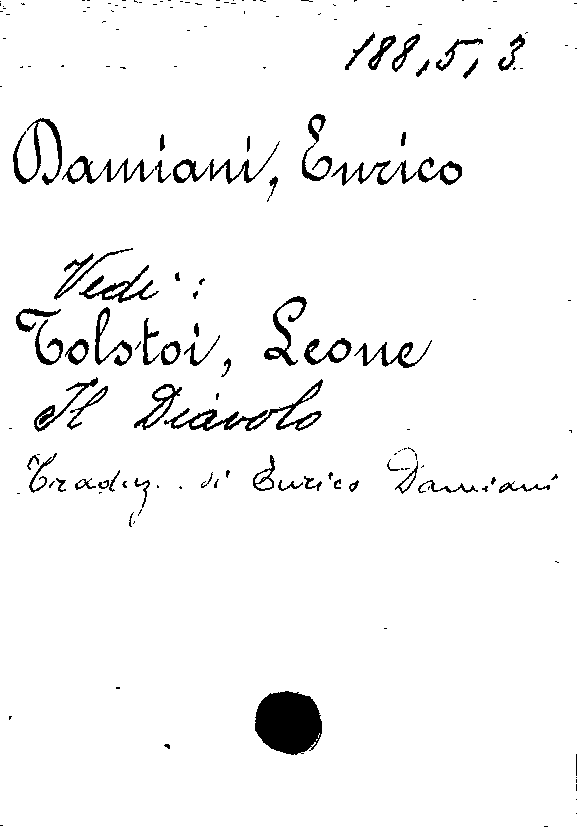 188,5,3
Damiani, Enrico
Vedi:
Tolstoi, Leone
Il Diavolo
Traduz. di Enrico Damiani